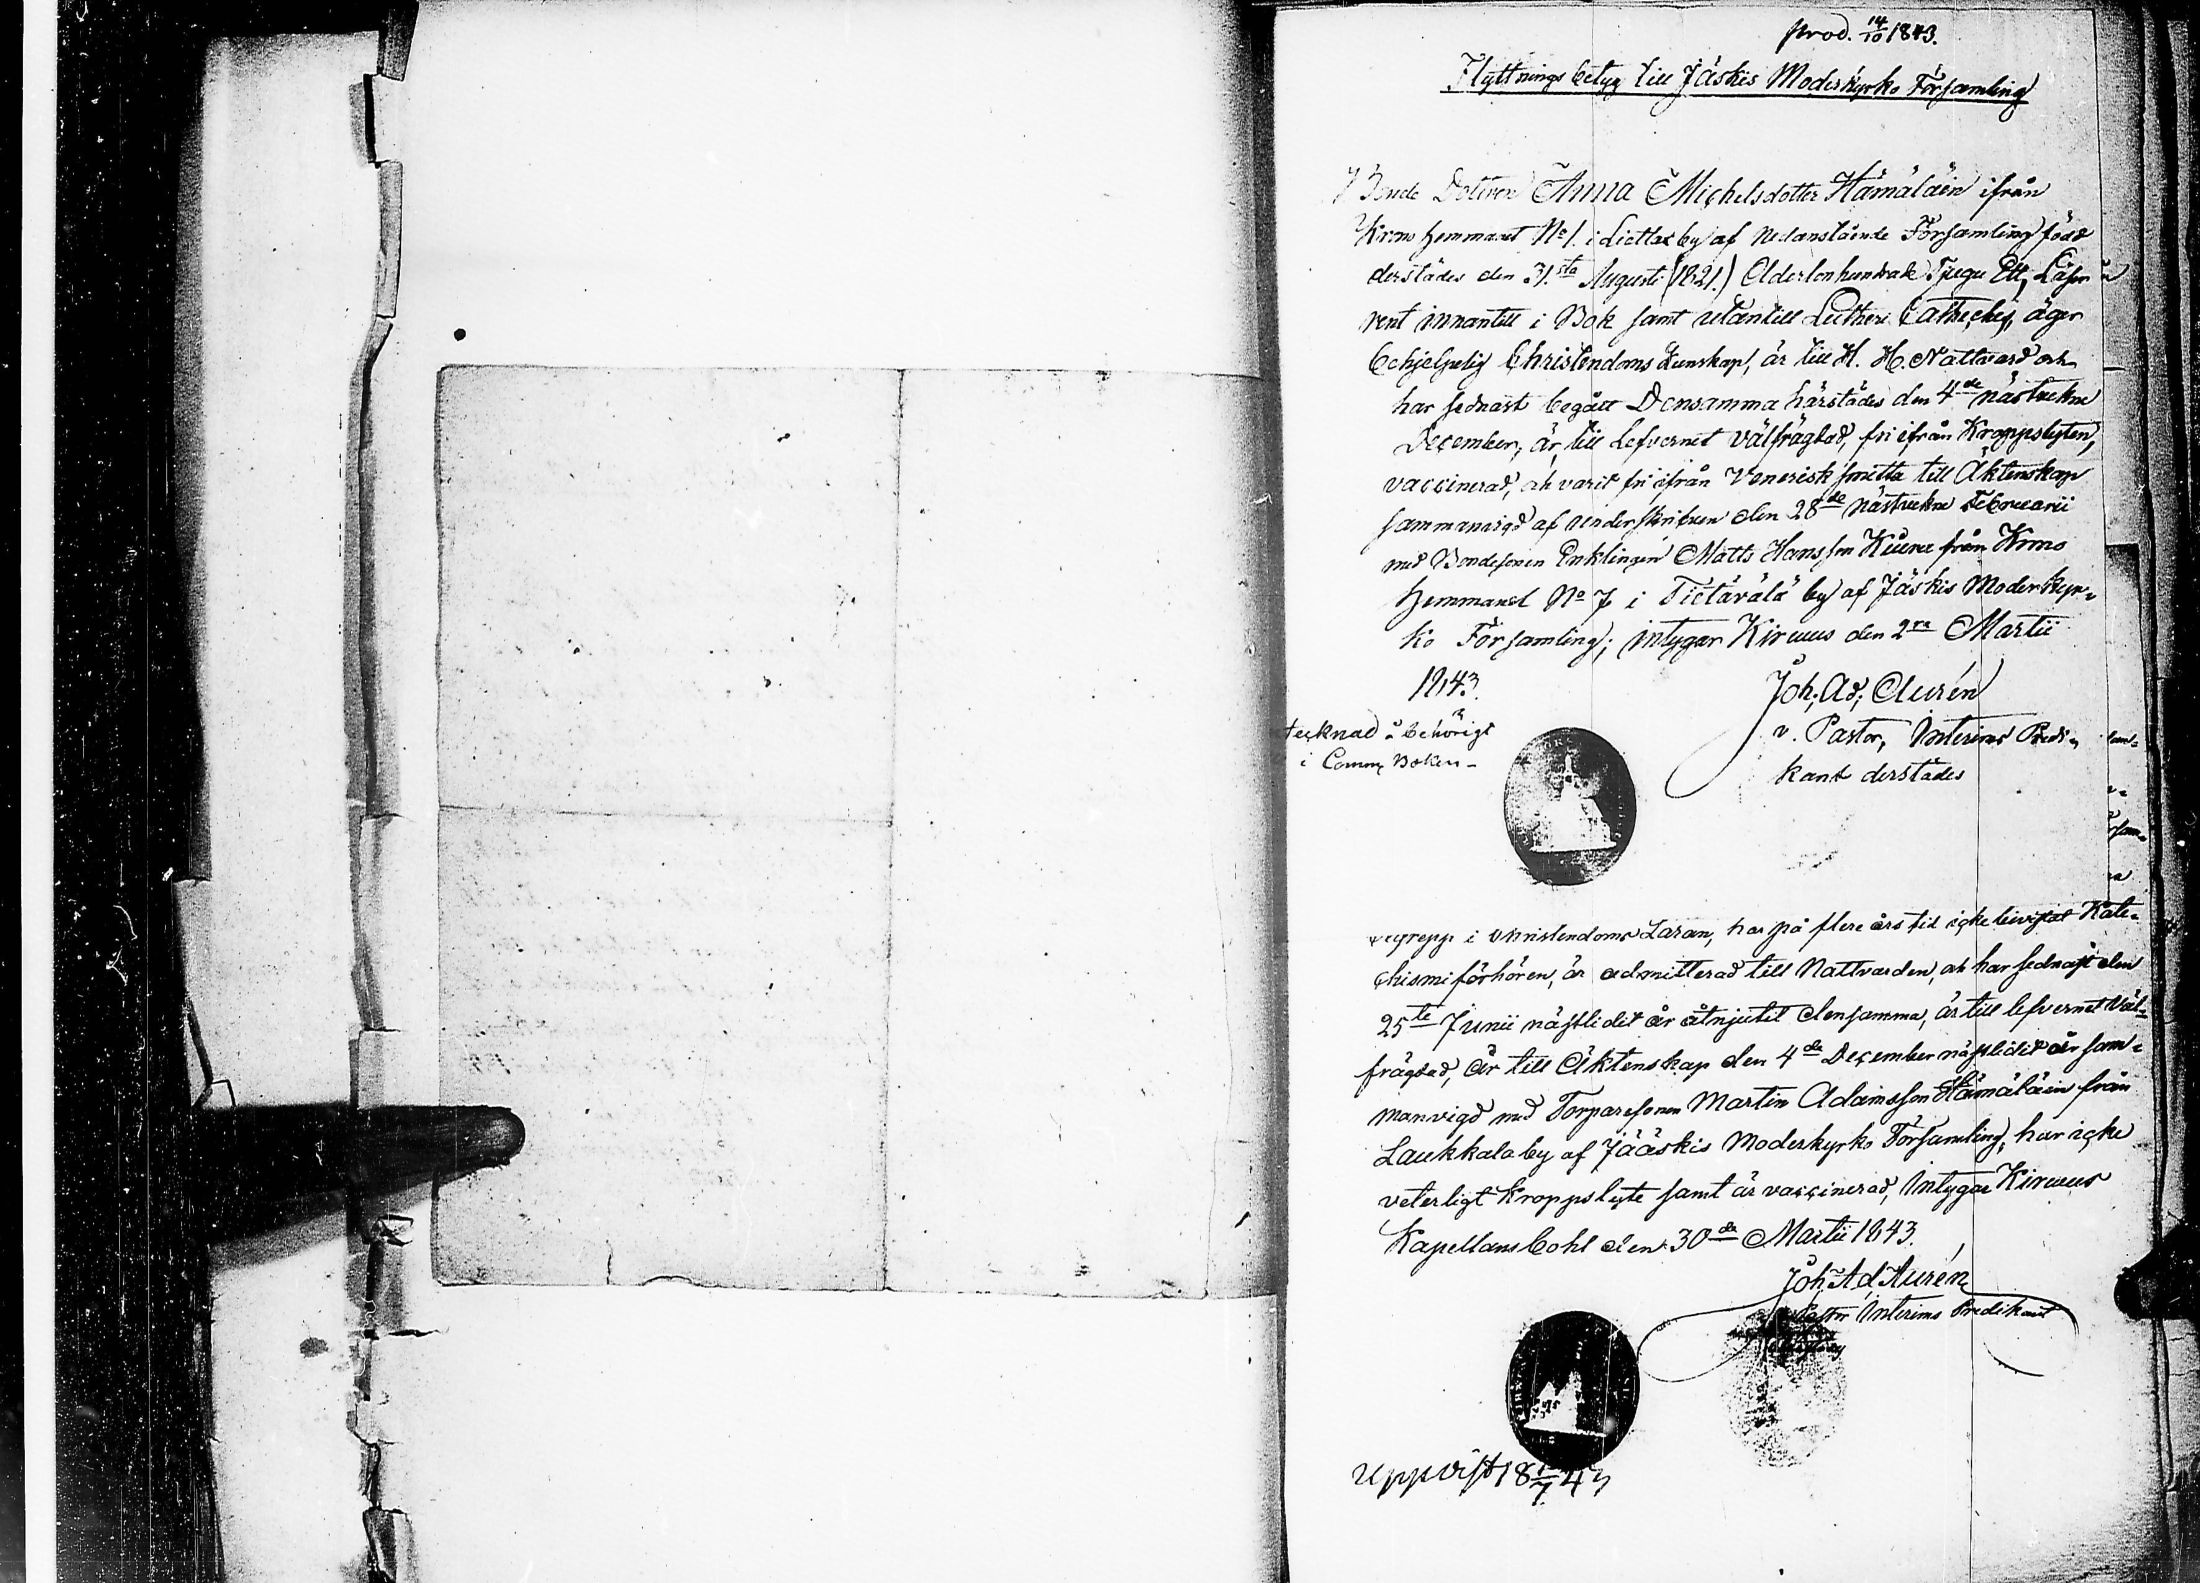 prod. 14/10 1843.
Flyttnings betyg till Jäskis Moderkyrko Församling
Bonde Dotren Anna Michelsdotter Hämäläin ifrån
Krono hemmanet No 1. i by af Nedanstående Församling född
derstädes den 31.sta Augusti (1821.) Adertonhundrade Tjugu Ett, Läser
rent innantill i Bok samt utantill Lutheri Catheches, äger
behjelpelig Christendoms Kunskap, är till H. H. Nattvard och
har sednast begått Densamma härstädes den 4de nästvekne
December, är till Lefvernet välfrägdad, fri ifrån Kroppslyten,
vaccinerad, och varit fri ifrån Venerisk smitta till Äktenskap
sammanvigd af underskrifven den 28de nästvekne Februarii
med Bondesonen Enklingen Matts Hansson från Krono
Hemmanet No 7 i Tietävälä by af Jäskis Moderkyr=
ko Församling; intygar Kirwus den 2ra Martii
1843.
Joh. Ad. Aurén
v. Pastor, Interims Predi=
kant derstädes
tecknad å behörigt
i Comm. Boken -
begrepp i Christendoms Läran, har på flere års tid icke bevistat Kate=
chismi förhören, är admitterad till Nattvarden, och har sednast den
25te Junii nästlidit år åtnjutit densamma, är till lefvernet Väl=
frägdad, är till Äktenskap den 4de December nästlidit år sam=
manvigd med Torparesonen Martin Adamsson Hämäläin från
Laukkala by af Jääskis Moderkyrko Församling, har icke
veterligt Kroppslyte samt är vaccinerad, Intygar Kirwus
Kapellans bohl den 30de Martii 1843.
Joh. Ad Aurén
Pastor Interims Predikant
Uppvist 18 1/7 43